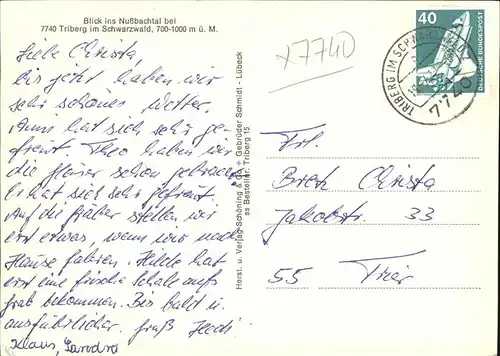 Blick ins Nußbachtal bei
7740 Triberg im Schwarzwald, 700-1000 m ü. M.
x7740
40
DEUTSCHE BUNDESPOST
TRIBERG IM SCHWARZWALD
7740
Liebe Christa,
bis jetzt haben wir
sehr schönes Wetter.
hat sich sehr ge-
freut. Theo haben wir
die Gläser schon gebracht
Er hat sich sehr gefreut.
Auf die Gräber stellen wir
erst etwas, wenn wir nach
Hause fahren. Helde hat
erst eine frische Schale aufs
Grab bekommen. Bis bald u.
ausführlicher. Gruß Hedi
Klaus, Sandra
Herst. u. Verlag Schöning & Co + Gebrüder Schmidt - Lübeck
Besteller: Triberg 15
Frl.
Bretz Christa
Jakobstr. 33
55 Trier